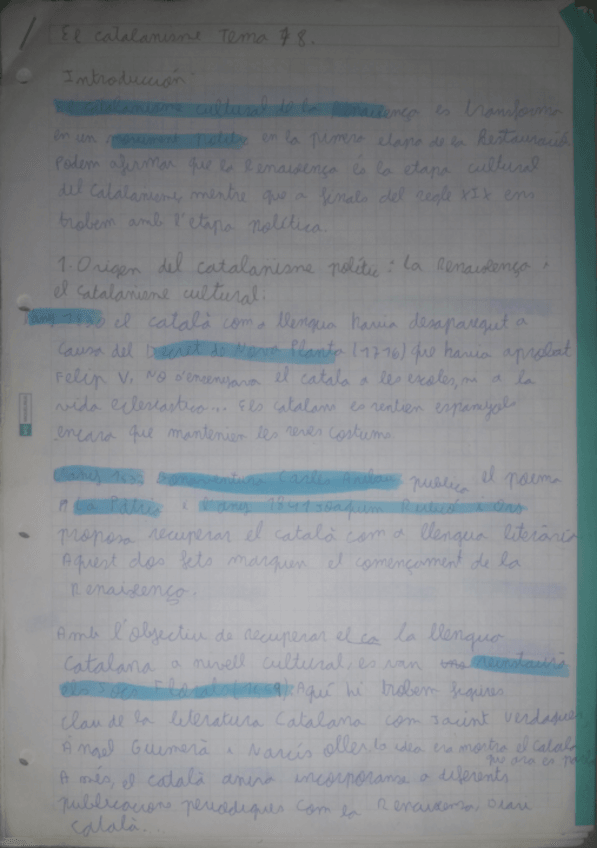 El catalanisme Tema 8.
Introducción:
El catalanisme cultural de la Renaixença es transforma
en un moviment polític en la primera etapa de la Restauració.
Podem afirmar que la Renaixença és la etapa cultural
del catalanisme, mentre que a finals del segle XIX ens
trobem amb l'etapa política.
1. Origen del catalanisme polític: La Renaixença i
el catalanisme cultural:
l'any 1830 el català com a llengua havia desaparegut a
causa del Decret de Nova Planta (1716) que havia aprobat
Felip V. NO s'ensenyava el català a les escoles, ni a la
vida eclesiàstica... Els catalans es sentien espanyols
encara que mantenien les seves costums.
L'any Bonaventura Carles Aribau publica el poema
A La Pàtria i l'any 1841 Joaquim Rubió i Ors
proposa recuperar el català com a llengua literària
Aquest dos fets marquen el començament de la
Renaixença.
Amb l'objectiu de recuperar el ca la llengua
Catalana a nivell cultural, es van reinstaurà
els Jocs Florals (1859). Aquí hi trobem figures
clau de la literatura Catalana com Jacint Verdaguer
Àngel Guimerà i Narcís Oller. la idea era mostra el català
que era es
A més, el català anirà incorporanse a diferents
publicacions periòdiques com la Renaixensa, Diari
Català...